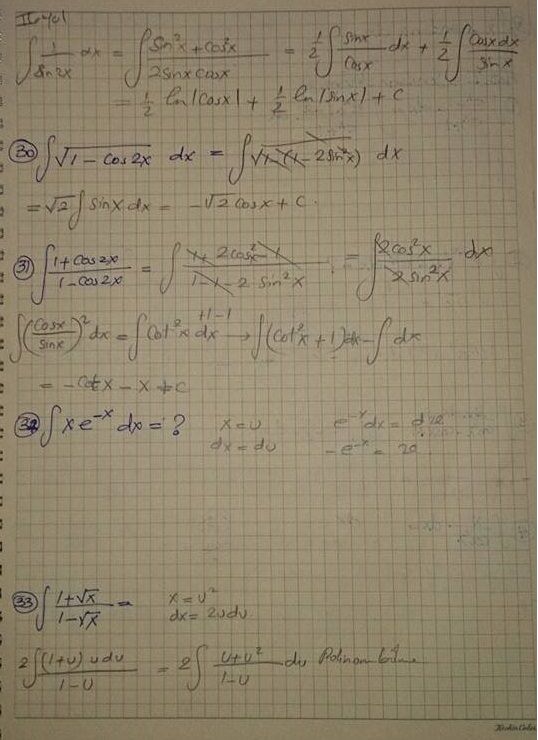 II. yol
∫ 1/sin2x dx = ∫ (sin²x + cos²x)/(2sinx cosx) = 1/2 ∫ sinx/cosx dx + 1/2 ∫ cosx dx/sinx
= 1/2 ln|cosx| + 1/2 ln|sinx| + c
30 ∫ √(1 - cos2x) dx = ∫ √(1-(1-2sin²x)) dx
= √2 ∫ sinx dx = -√2 cosx + c.
31 ∫ (1+cos2x)/(1-cos2x) = ∫ (1+2cos²x-1)/(1-1-2 sin²x) = ∫ 2cos²x/2sin²x dx
∫ (cosx/sinx)² dx = ∫ cot²x dx +1-1 → ∫ (cot²x + 1)dx - ∫ dx
= -cotx - x + c
32 ∫ x e^-x dx = ? x = u e^-x dx = dv
dx = du -e^-x = v
33 ∫ (1+√x)/(1-√x) = x = u²
dx = 2u du
2∫ (1+u) u du/(1-u) = 2∫ (u+u²)/(1-u) du Polinom
Keskin Color